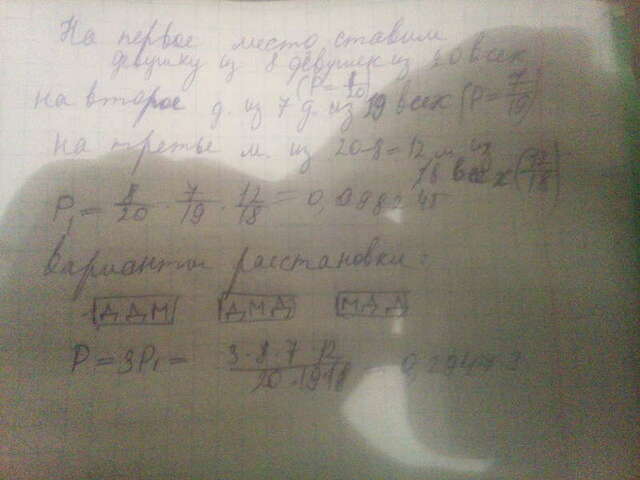 На первое место ставим
девушку из 8 девушек из 20 всех
(P = 8/20)
на второе д. из 7 д. из 19 всех (P = 7/19)
на третье м. из 20-8=12 м. из
18 всех (12/18)
P₁ = 8/20 · 7/19 · 12/18 = 0,09824
Варианты расстановки:
ДДМ ДМД МДД
P = 3P₁ = 3·8·7·12/20·19·18